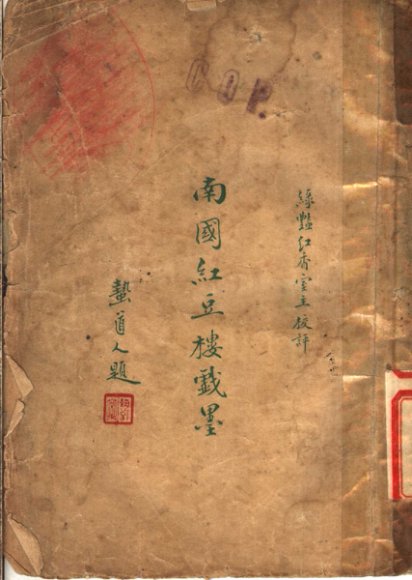 綠豔紅香室主校評
南國紅豆樓戲墨
蟄道人題
COP